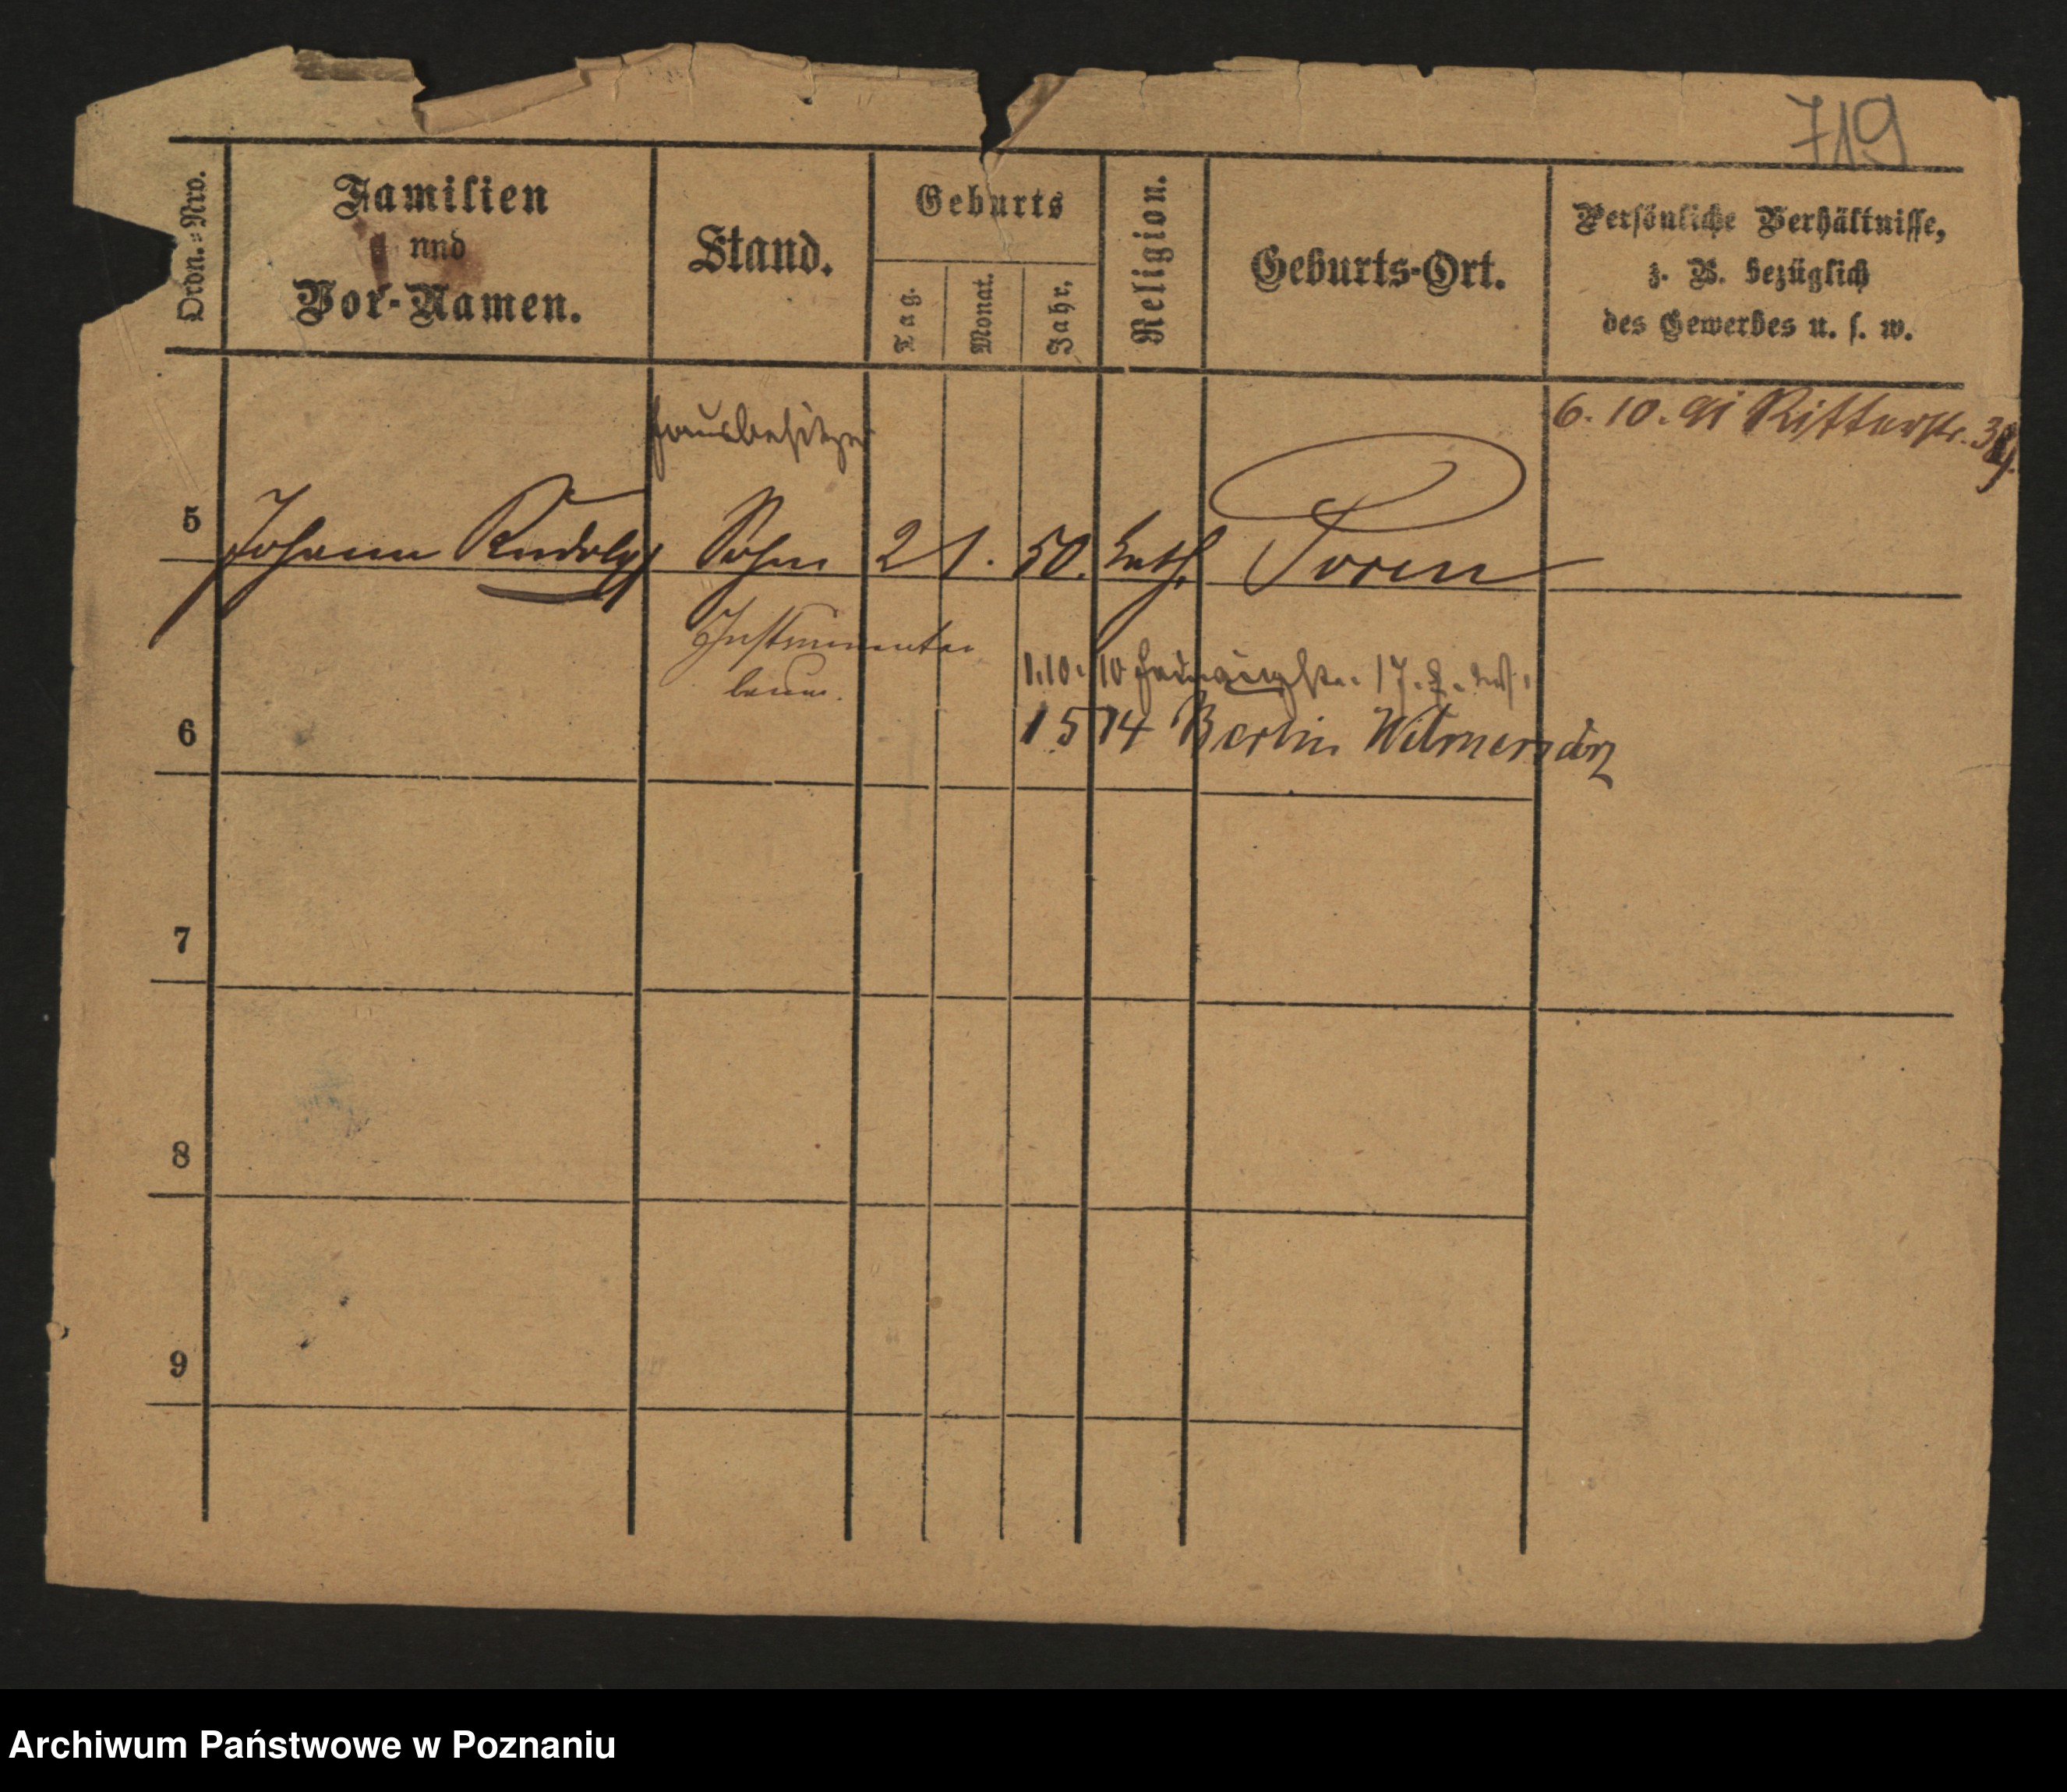 719
Ordn.=Nro.
Familien
und
Vor-Namen.
Stand.
Geburts
Tag.
Monat.
Jahr.
Religion.
Geburts-Ort.
Persönliche Verhältnisse,
z. B. bezüglich
des Gewerbes u. s. w.
6. 10. 91 Ritterstr.
Hausbesitzer
5 Johann Rudolph Sohn 2 1. 50. kath. Posen
Instrumenten
bauer.
1.10.10 Hedwigstr. 17.
6
1 5 14 Berlin Wilmersdorf
7
8
9
Archiwum Państwowe w Poznaniu